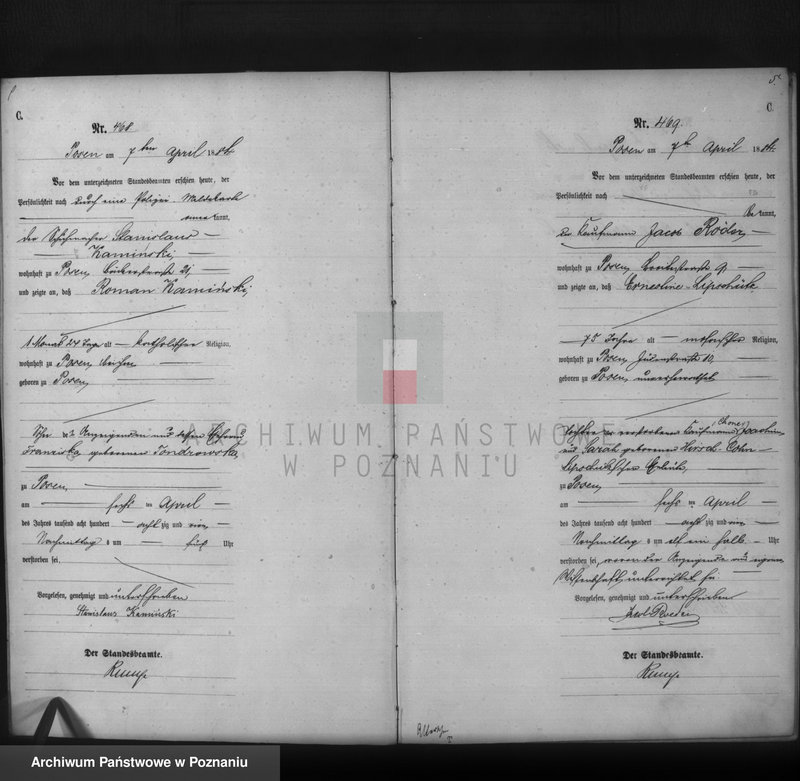 C.
Nr. 468
Posen am 7ten April 1884.
Vor dem unterzeichneten Standesbeamten erschien heute, der
Persönlichkeit nach durch eine Polizei Meldekarte
aner kannt,
der Schuhmacher Stanislaus
Kaminski,
wohnhaft zu Posen, 21,
und zeigte an, daß Roman Kaminski,
1 Monat 24 Tage alt katholischer Religion,
wohnhaft zu Posen bei ihm
geboren zu Posen,
Sohn des Anzeigenden und dessen Ehefrau
Franziska geborenen
zu Posen,
am sechs ten April
des Jahres tausend acht hundert acht zig und vier
Nachmittag s um fünf Uhr
verstorben sei.
Vorgelesen, genehmigt und unterschrieben
Stanislaus Kaminski
Der Standesbeamte.
C.
Nr. 469.
Posen am 7ten April 1884.
Vor dem unterzeichneten Standesbeamten erschien heute, der
Persönlichkeit nach
be kannt,
der Kaufmann Jacob Röder,
wohnhaft zu Posen, Breitestraße 9,
und zeigte an, daß Ernestine Lipschütz,
75 Jahre alt mosaischer Religion,
wohnhaft zu Posen, 10,
geboren zu Posen, unverehelicht
Tochter der verstorbenen Kaufmann Joachim
und Sarah geborenen Hirsch-Cohn
Lipschützschen Eheleute,
zu Posen,
am sechs ten April
des Jahres tausend acht hundert acht zig und vier
Nachmittag s um elf ein halb Uhr
verstorben sei, wovon der Anzeigende aus eigener
Wissenschaft unterrichtet sei.
Vorgelesen, genehmigt und unterschrieben
Jacob Roeder
Der Standesbeamte.
ARCHIWUM PAŃSTWOWE
W POZNANIU
Archiwum Państwowe w Poznaniu